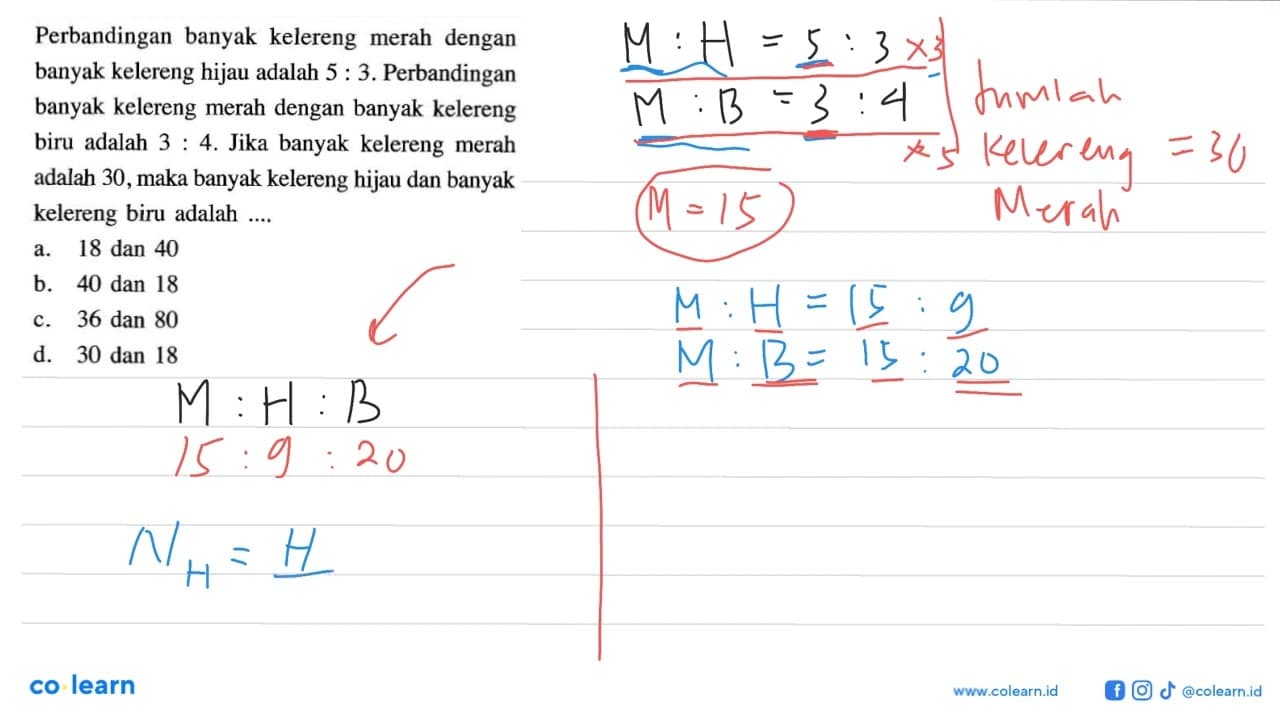 Perbandingan banyak kelereng merah dengan
banyak kelereng hijau adalah 5 : 3. Perbandingan
banyak kelereng merah dengan banyak kelereng
biru adalah 3 : 4. Jika banyak kelereng merah
adalah 30, maka banyak kelereng hijau dan banyak
kelereng biru adalah ....
a. 18 dan 40
b. 40 dan 18
c. 36 dan 80
d. 30 dan 18
M : H : B
15 : 9 : 20
N_H = H
M : H = 5 : 3 ×3
M : B = 3 : 4 ×5
Jumlah
Kelereng = 30
Merah
M = 15
M : H = 15 : 9
M : B = 15 : 20
co learn
www.colearn.id
@colearn.id